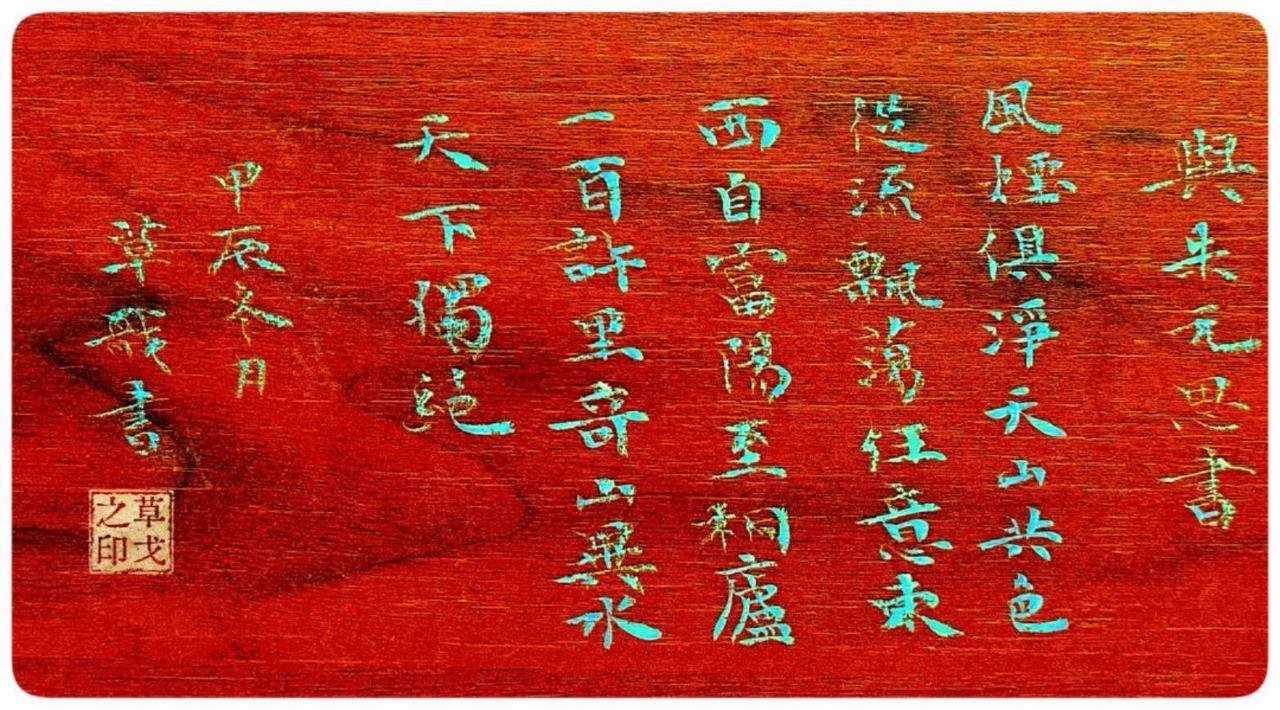 與朱元思書
風煙俱淨天山共色
從流飄蕩任意東
西自富陽至桐廬
一百許里奇山異水
天下獨絕
甲辰冬月
草書
草戈之印